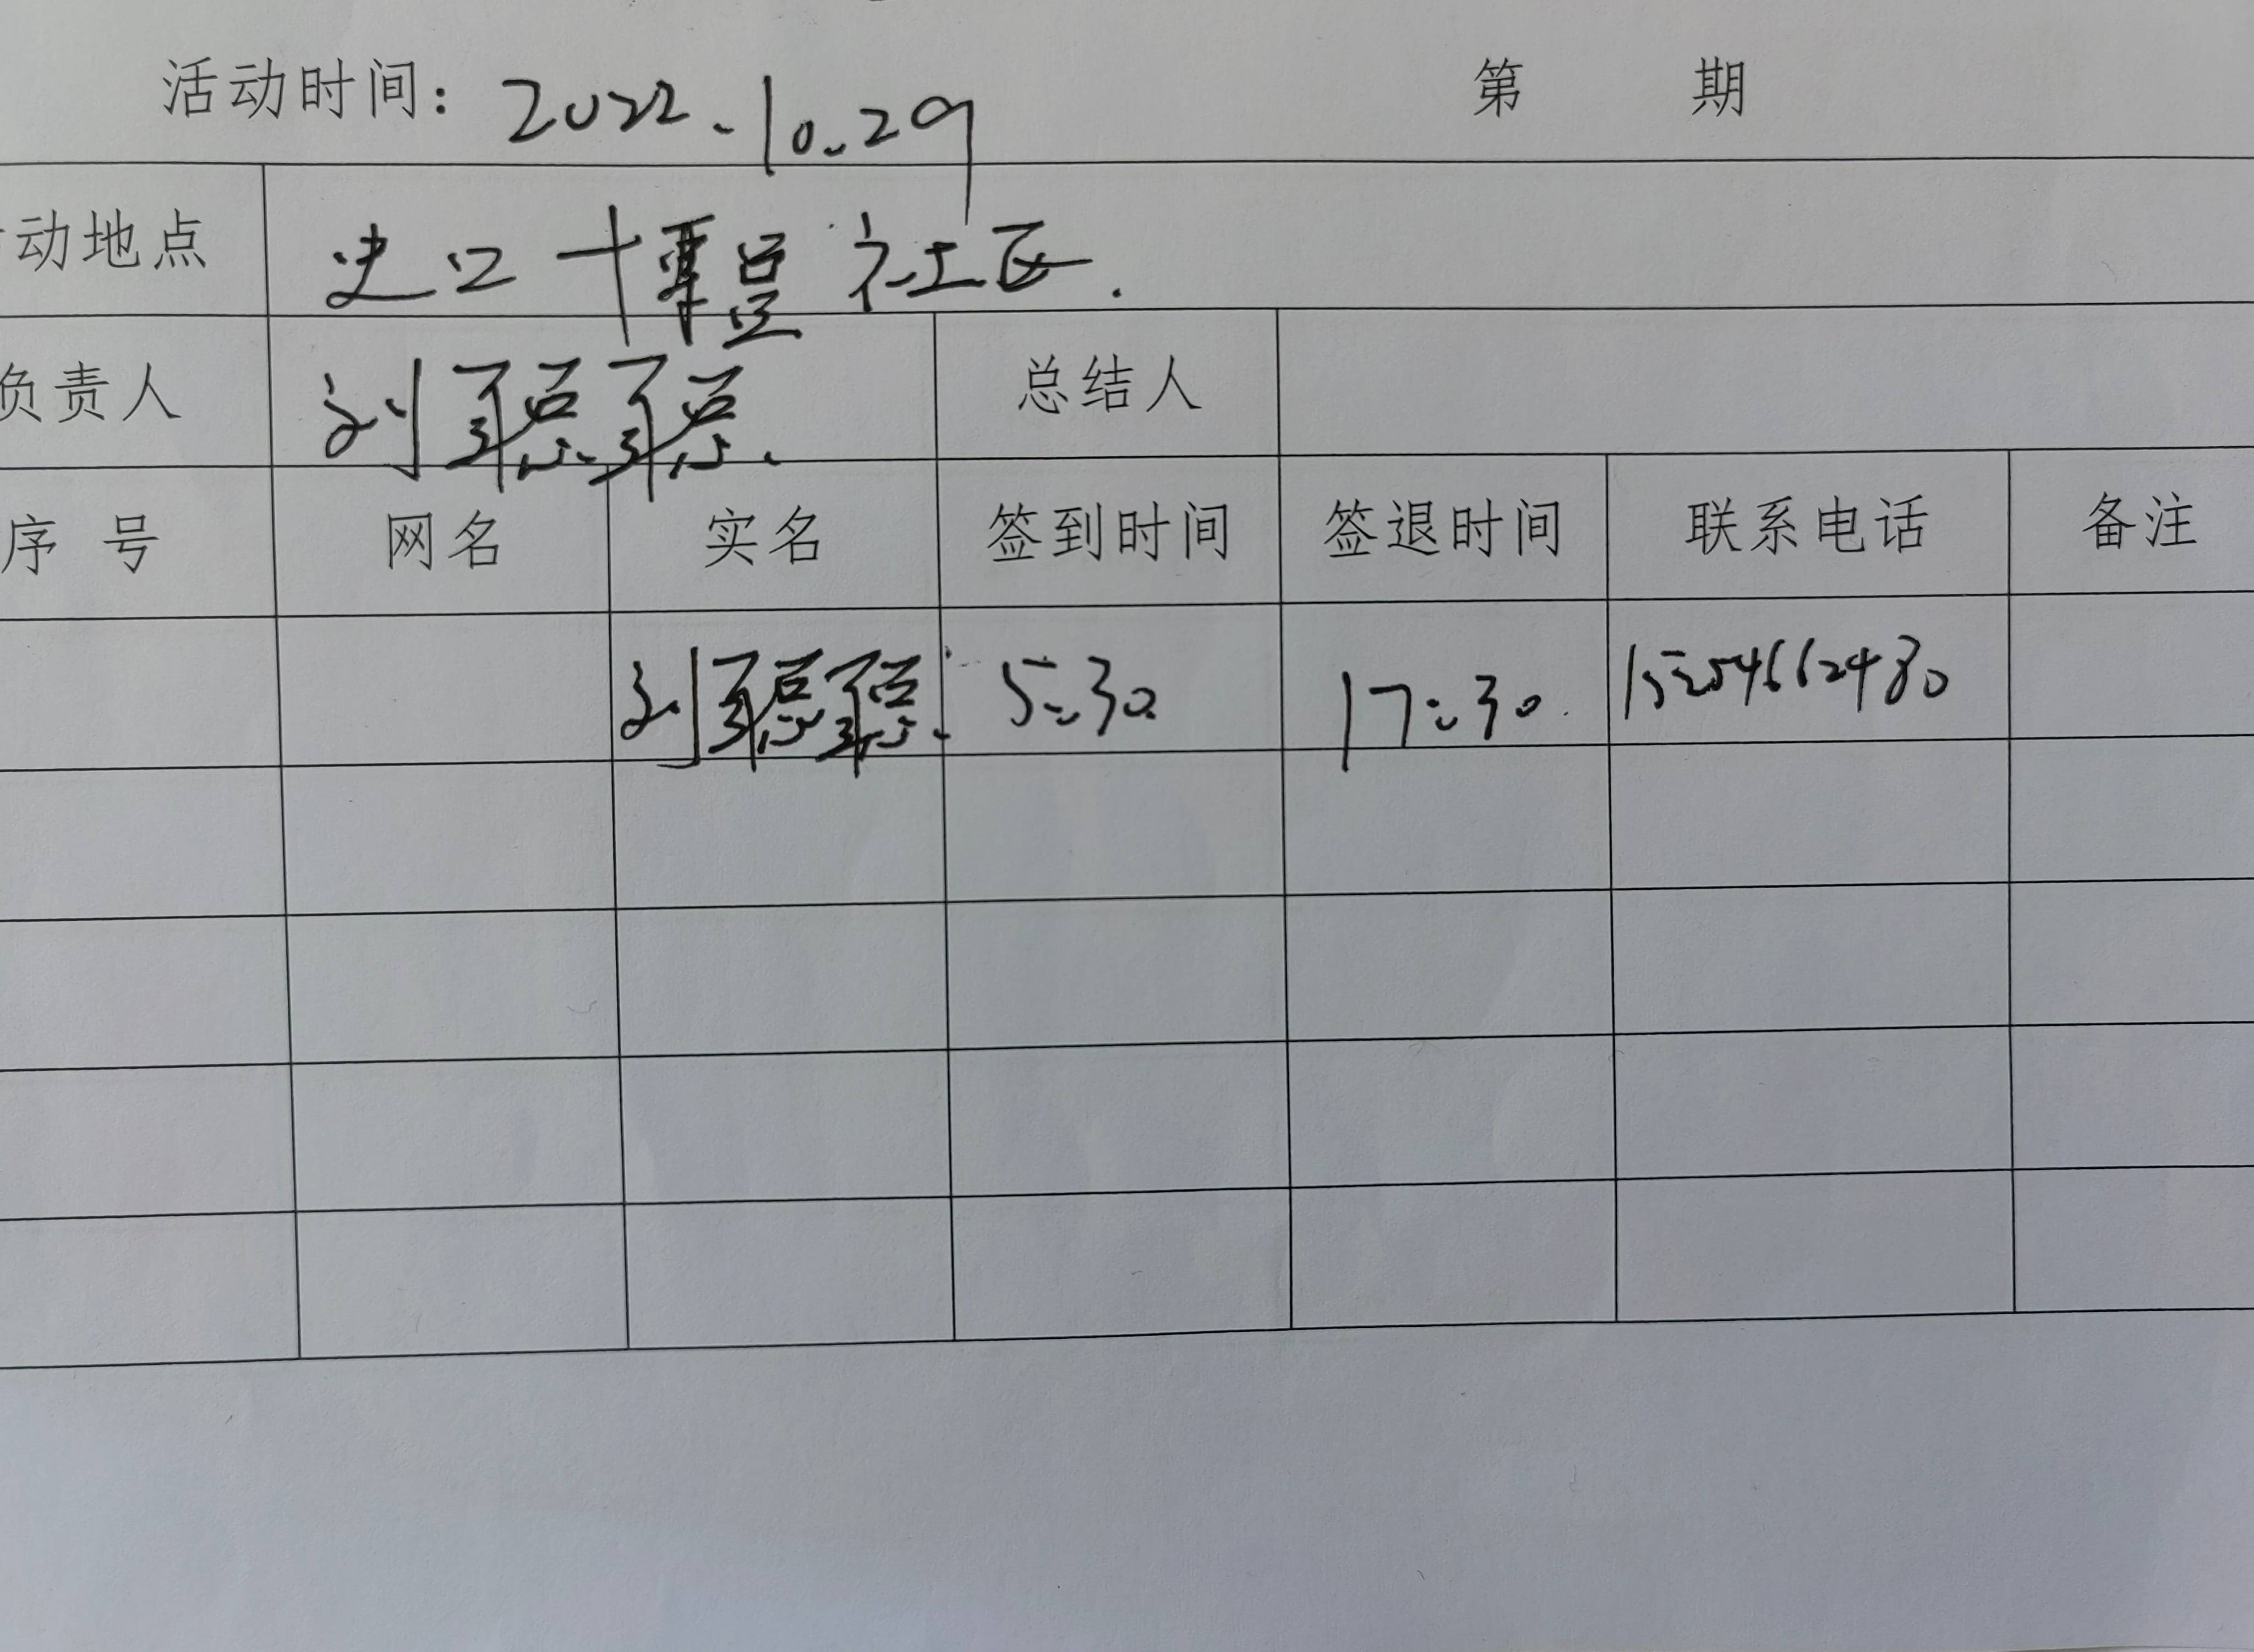 活动时间: 2022.10.29 第 期
动地点 史口 社区.
负责人 刘聪聪. 总结人
序 号 网名 实名 签到时间 签退时间 联系电话 备注
刘聪聪. 5:30 17:30. 15254662480